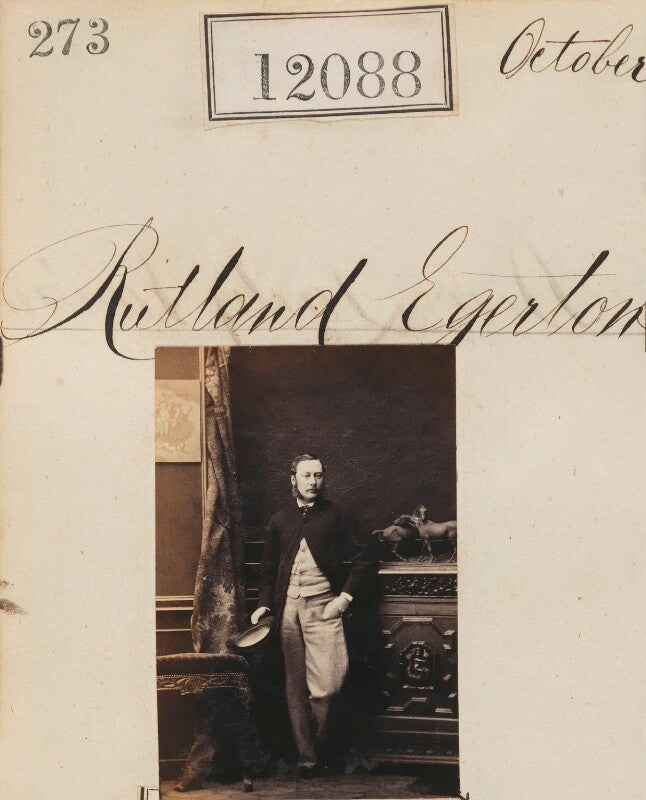 273 12088 October
Rutland Egerton